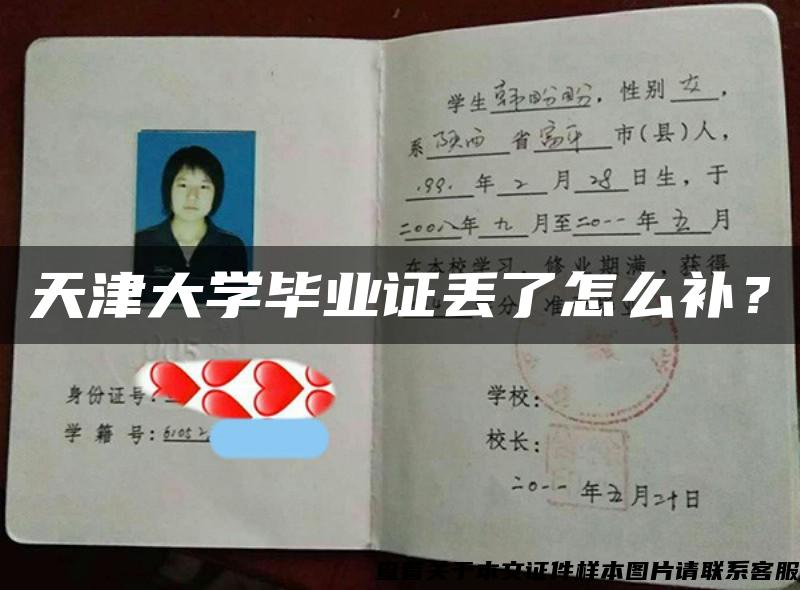 学生韩盼盼，性别女，
系陕西省富平市(县)人，
1991年2月28日生，于
二00八年九月至二0一一年五月
在本校学习，修业期满，获得
天津大学毕业证丢了怎么补？
身份证号：
学籍号：61052
学校：
校长：
二0一一年五月二十日
查看关于本文证件样本图片请联系客服